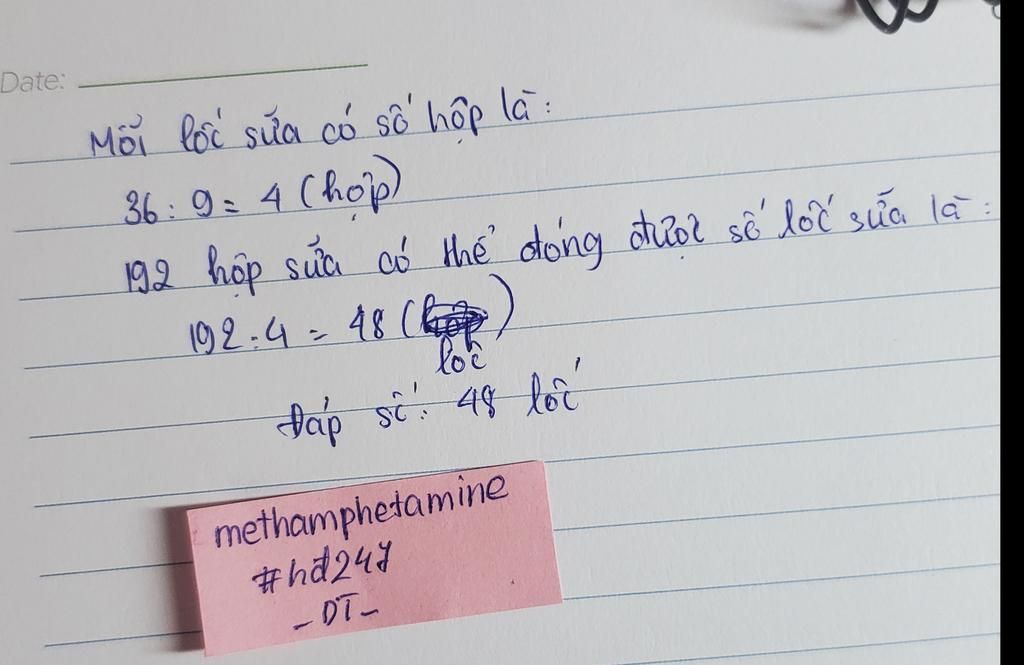 Date:
Mỗi lốc sữa có số hộp là:
36 : 9 = 4 (hộp)
192 hộp sữa có thể đóng được số lốc sữa là:
192 : 4 = 48 (
lốc
)
Đáp số: 48 lốc
methamphetamine
#hđ247
-DT-